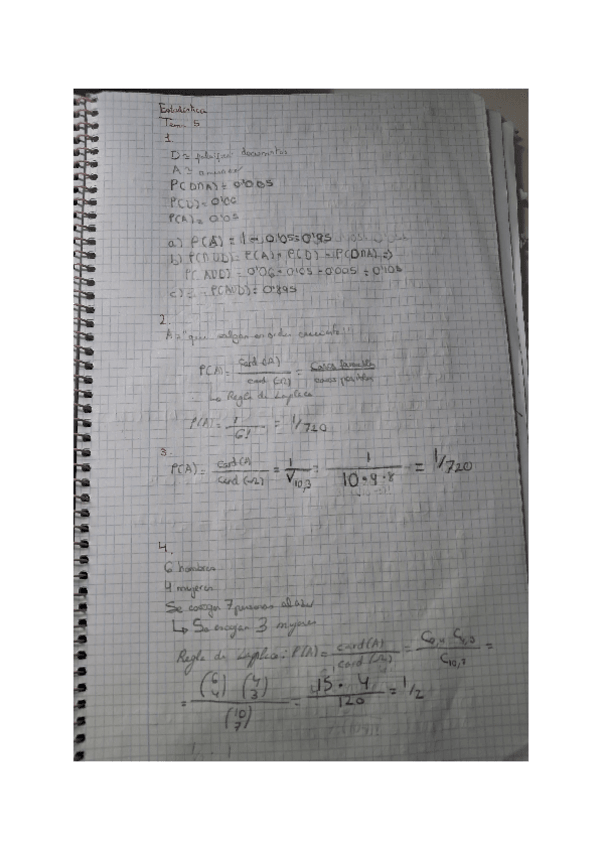 Estadística
Tema 5
1.
D = falsificar documentos
A =
P(D∩A) = 0'005
P(D) = 0'06
P(A) = 0'05
a) P(Ā) = 1 - 0'05 = 0'95
b) P(A∪D) = P(A) + P(D) - P(D∩A) =>
P(A∪D) = 0'06 + 0'05 - 0'005 = 0'105
c) 1 - P(A∪D) = 0'895
2.
A = "que salgan en orden creciente"
P(A) = card(A) / card(Ω) = casos favorables / casos posibles
↳ Regla de Laplace
P(A) = 1 / 6! = 1/720
3.
P(A) = card(A) / card(Ω) = 1 / V10,3 = 1 / 10·9·8 = 1/720
4.
6 hombres
4 mujeres
Se escogen 7 personas al azar
↳ Se escogen 3 mujeres
Regla de Laplace: P(A) = card(A) / card(Ω) = C6,4 C4,3 / C10,7 =
= (6 4) (4 3) / (10 7) = 15 · 4 / 120 = 1/2